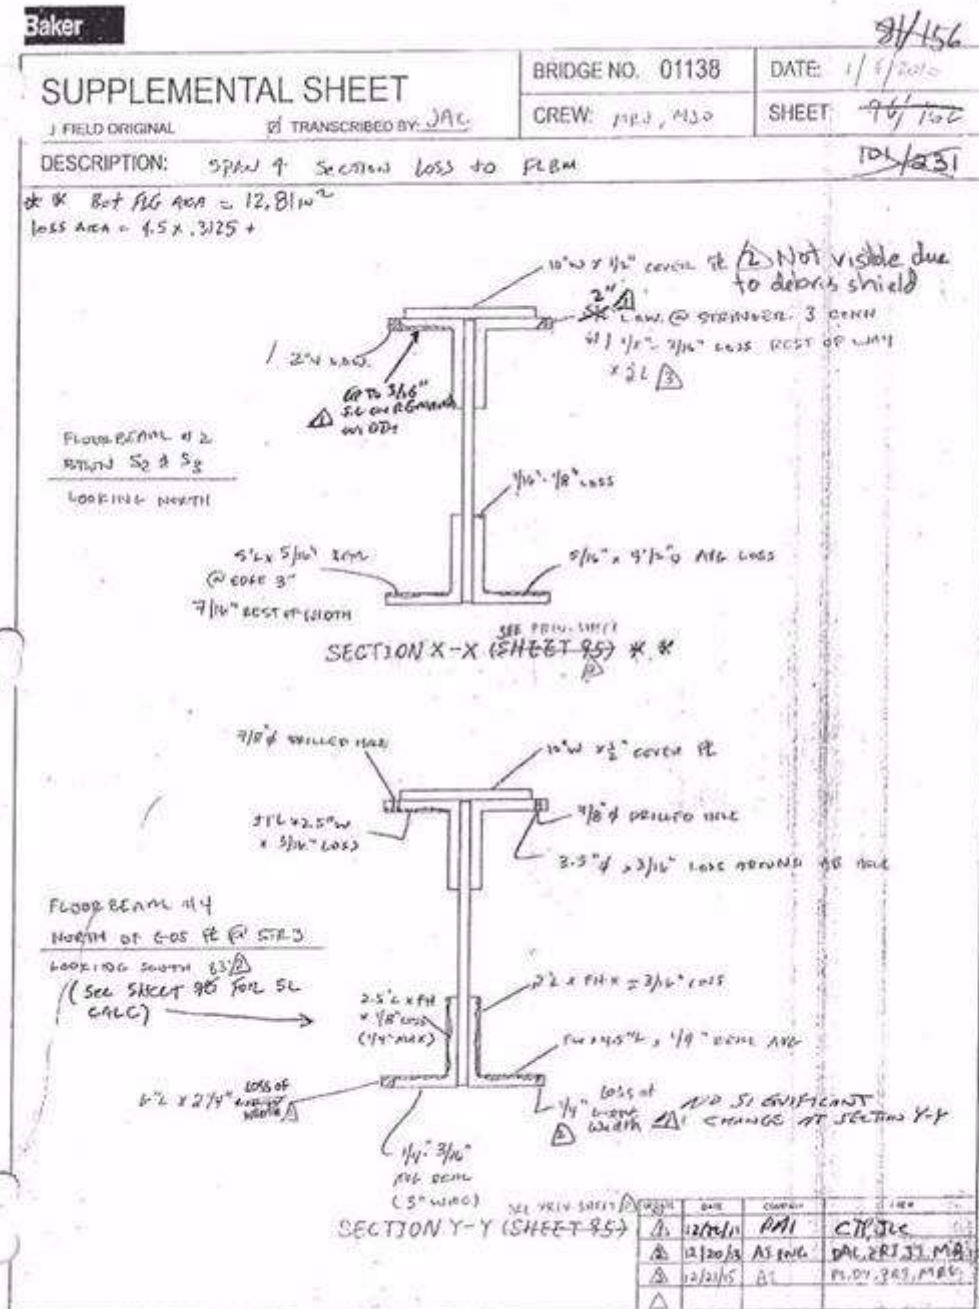 Baker
81/156
SUPPLEMENTAL SHEET
FIELD ORIGINAL
TRANSCRIBED BY: JAC
BRIDGE NO. 01138
DATE: 1/5/2010
CREW: MRJ, MJO
SHEET: 96/102
101/231
DESCRIPTION: SPAN 9 SECTION LOSS to FLBM
** Bot FLG AREA = 12.81 IN²
loss AREA = 4.5 x .3125 +
10"W x 1/2" COVER PL
2 Not visible due
to debris shield
2"
1
L.O.W. @ STRINGER 3 CONN
W/ 1/8"- 3/16" LOSS REST OF WAY
x 2'L 3
2"W L.O.W.
UP TO 3/16"
S.L ON REMAINING
WIDTH
1
FLOORBEAM #2
BTWN S2 & S3
LOOKING NORTH
1/16"-1/8" LOSS
5'L x 5/16" REM
@ EDGE 3"
7/16" REST OF WIDTH
5/16" x 4 1/2" AVG LOSS
SEE PREV. SHEET
SECTION X-X (SHEET 95) **
2
7/8"ø DRILLED HOLE
10"W x 1/2" COVER PL
x 2.5"W
x 3/16" LOSS
7/8"ø DRILLED HOLE
3.5"ø x 3/16" LOSS AROUND HOLE
FLOORBEAM #4
NORTH OF PL @ STR3
LOOKING SOUTH 83 2
(SEE SHEET FOR SL
CALC)
2.5'L x FH
x 1/8" LOSS
(1/4" MAX)
2'L x FH x = 3/16" LOSS
1/4" REM AVG
6"L x 2 1/4" LOSS OF
WIDTH
1/4" LOSS of
WIDTH
2
1 NO SIGNIFICANT
CHANGE AT SECTION Y-Y
1/4"- 3/16"
AVG REM
(3" WIDE)
SEE PREV. SHEET 2
SECTION Y-Y (SHEET 95)
DATE COMPANY CREW
1 PAI CTP, JLC
2 12/20/13 DAL, ZRJ, JJ, MR
3 12/21/15 AI